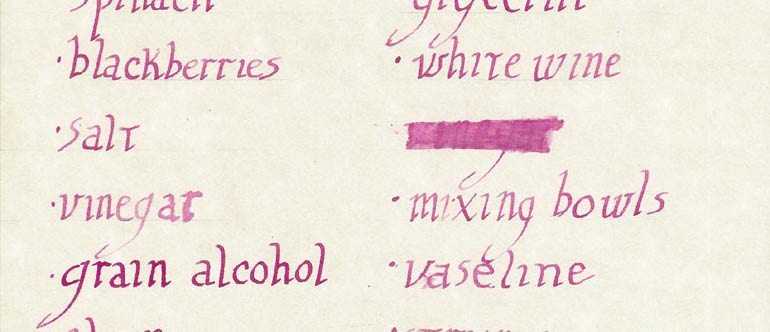 spinach
· blackberries
· salt
· vinegar
· grain alcohol
glycerin
· white wine
· mixing bowls
· vaseline